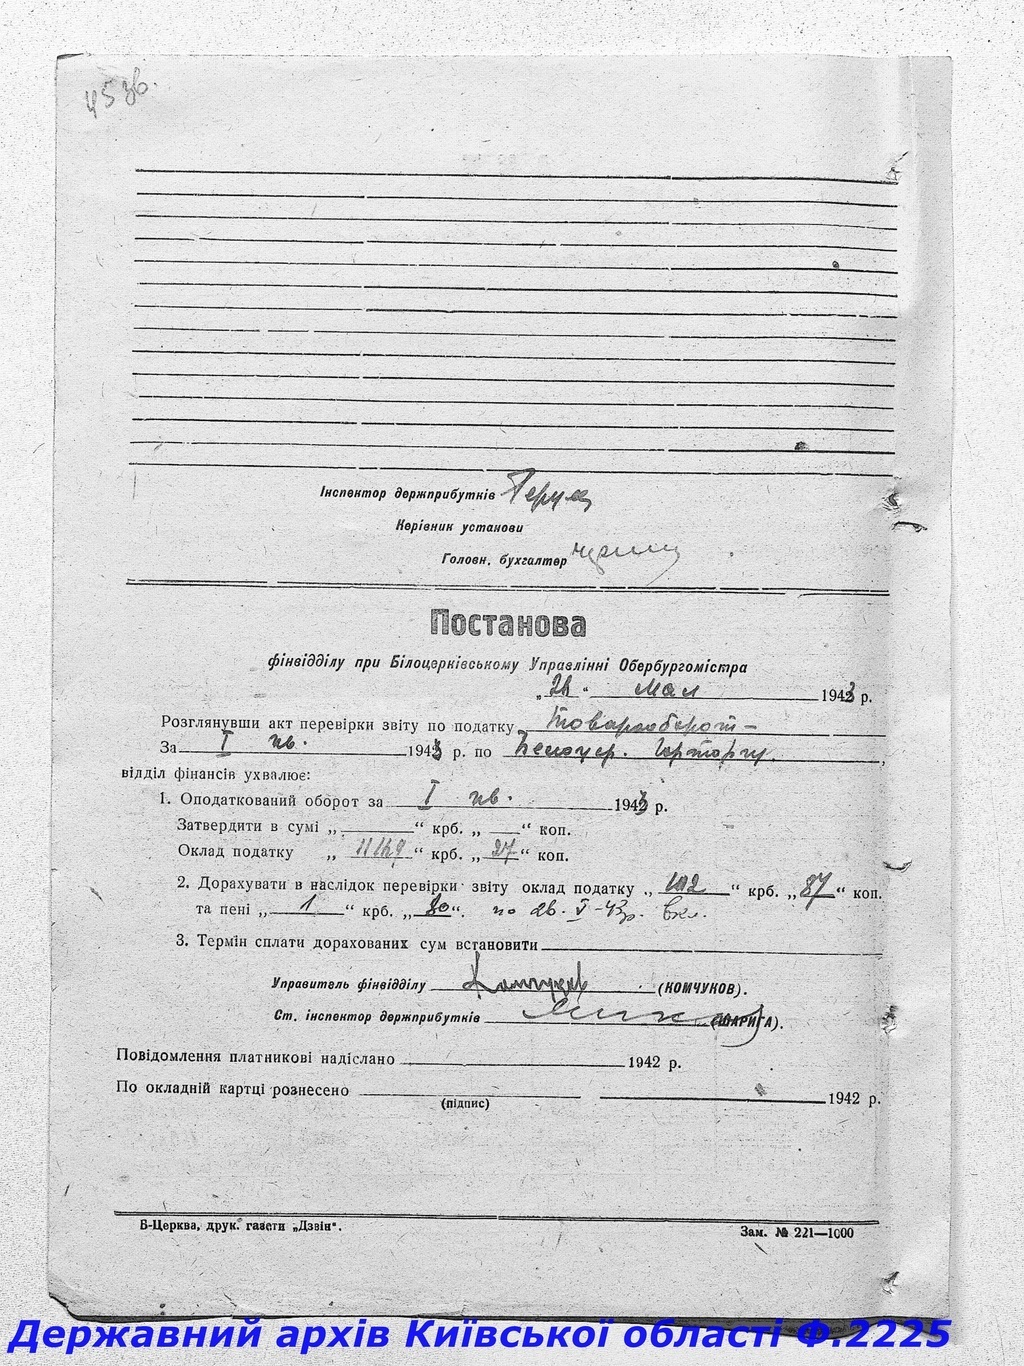 45 зв.
Інспектор держприбутків
Керівник установи
Головн. бухгалтер
Постанова
фінвідділу при Білоцерківському Управлінні Обербургомістра
„28“ мая 1943 р.
Розглянувши акт перевірки звіту по податку товарооборот-
За I кв. 1943 р. по Белоцер. Горторгу,
відділ фінансів ухвалює:
1. Оподаткований оборот за I кв. 1943 р.
Затвердити в сумі „ “ крб. „ “ коп.
Оклад податку „ “ крб. „27“ коп.
2. Дорахувати в наслідок перевірки звіту оклад податку „ “ крб. „87“ коп.
та пені „1“ крб. „80“. по 28. V-43р. вкл.
3. Термін сплати дорахованих сум встановити
Управитель фінвідділу Комчуков (КОМЧУКОВ).
Ст. інспектор держприбутків (ШАРИГА).
Повідомлення платникові надіслано 1942 р.
По окладній картці рознесено 1942 р.
(підпис)
Б-Церква, друк. газети „Дзвін“.
Зам. № 221—1000
Державний архів Київської області Ф.2225